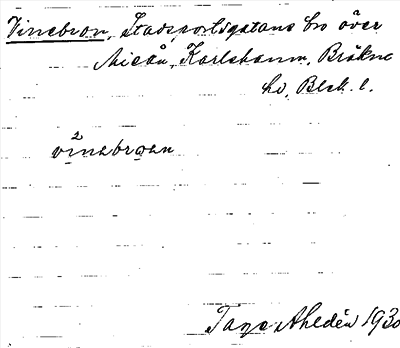 Vinebron, Stadsportsgatans bro över
Mieån, Karlshamn, Bräkne
hd, Blek. l.
2
vinebroən
Tage Ahldén 1930